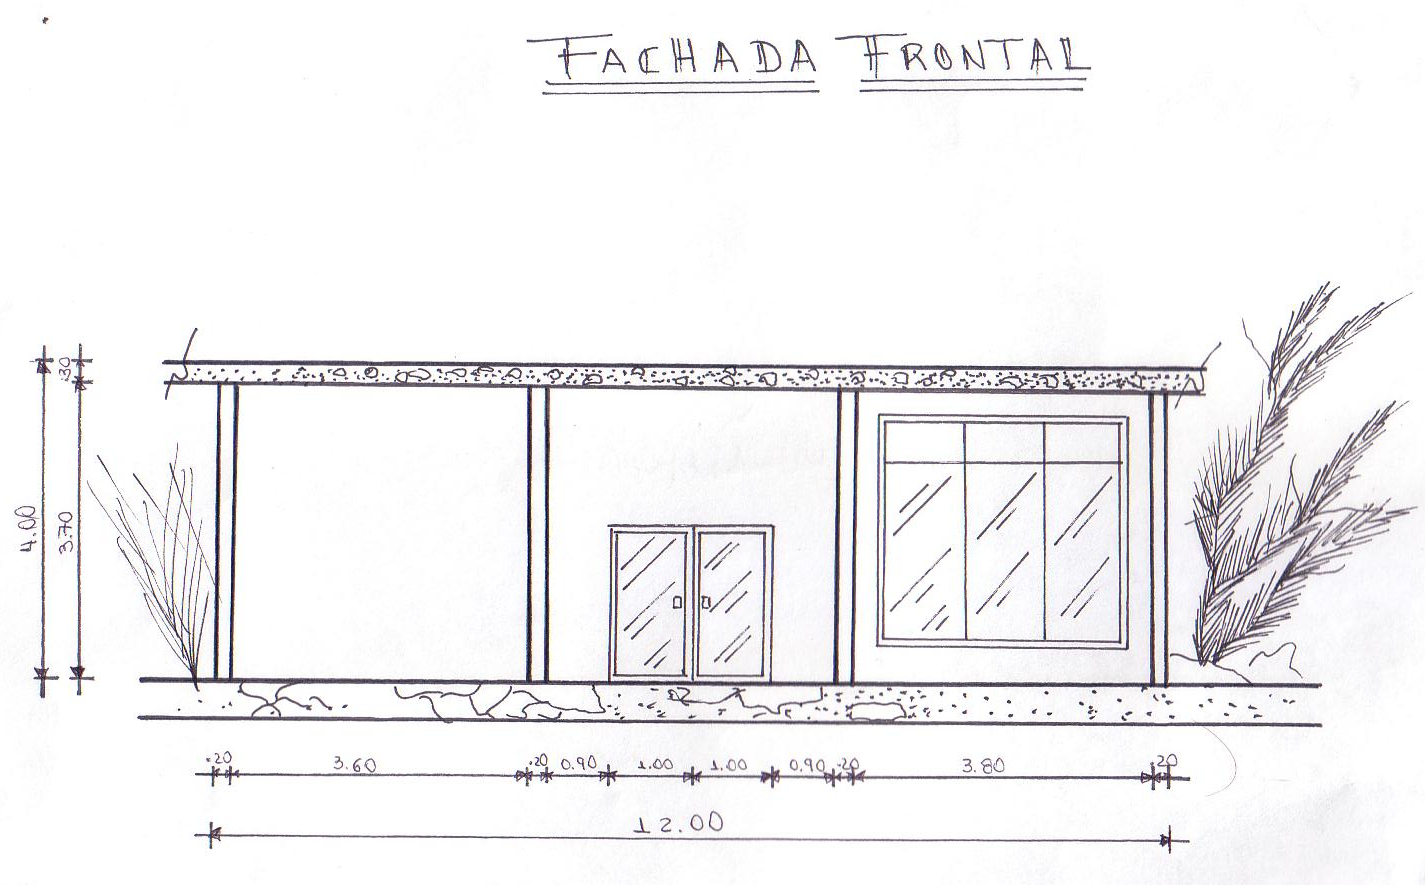 FACHADA FRONTAL
.30
4.00
3.70
.20 3.60 .20 0.90 1.00 1.00 0.90 .20 3.80 .20
12.00